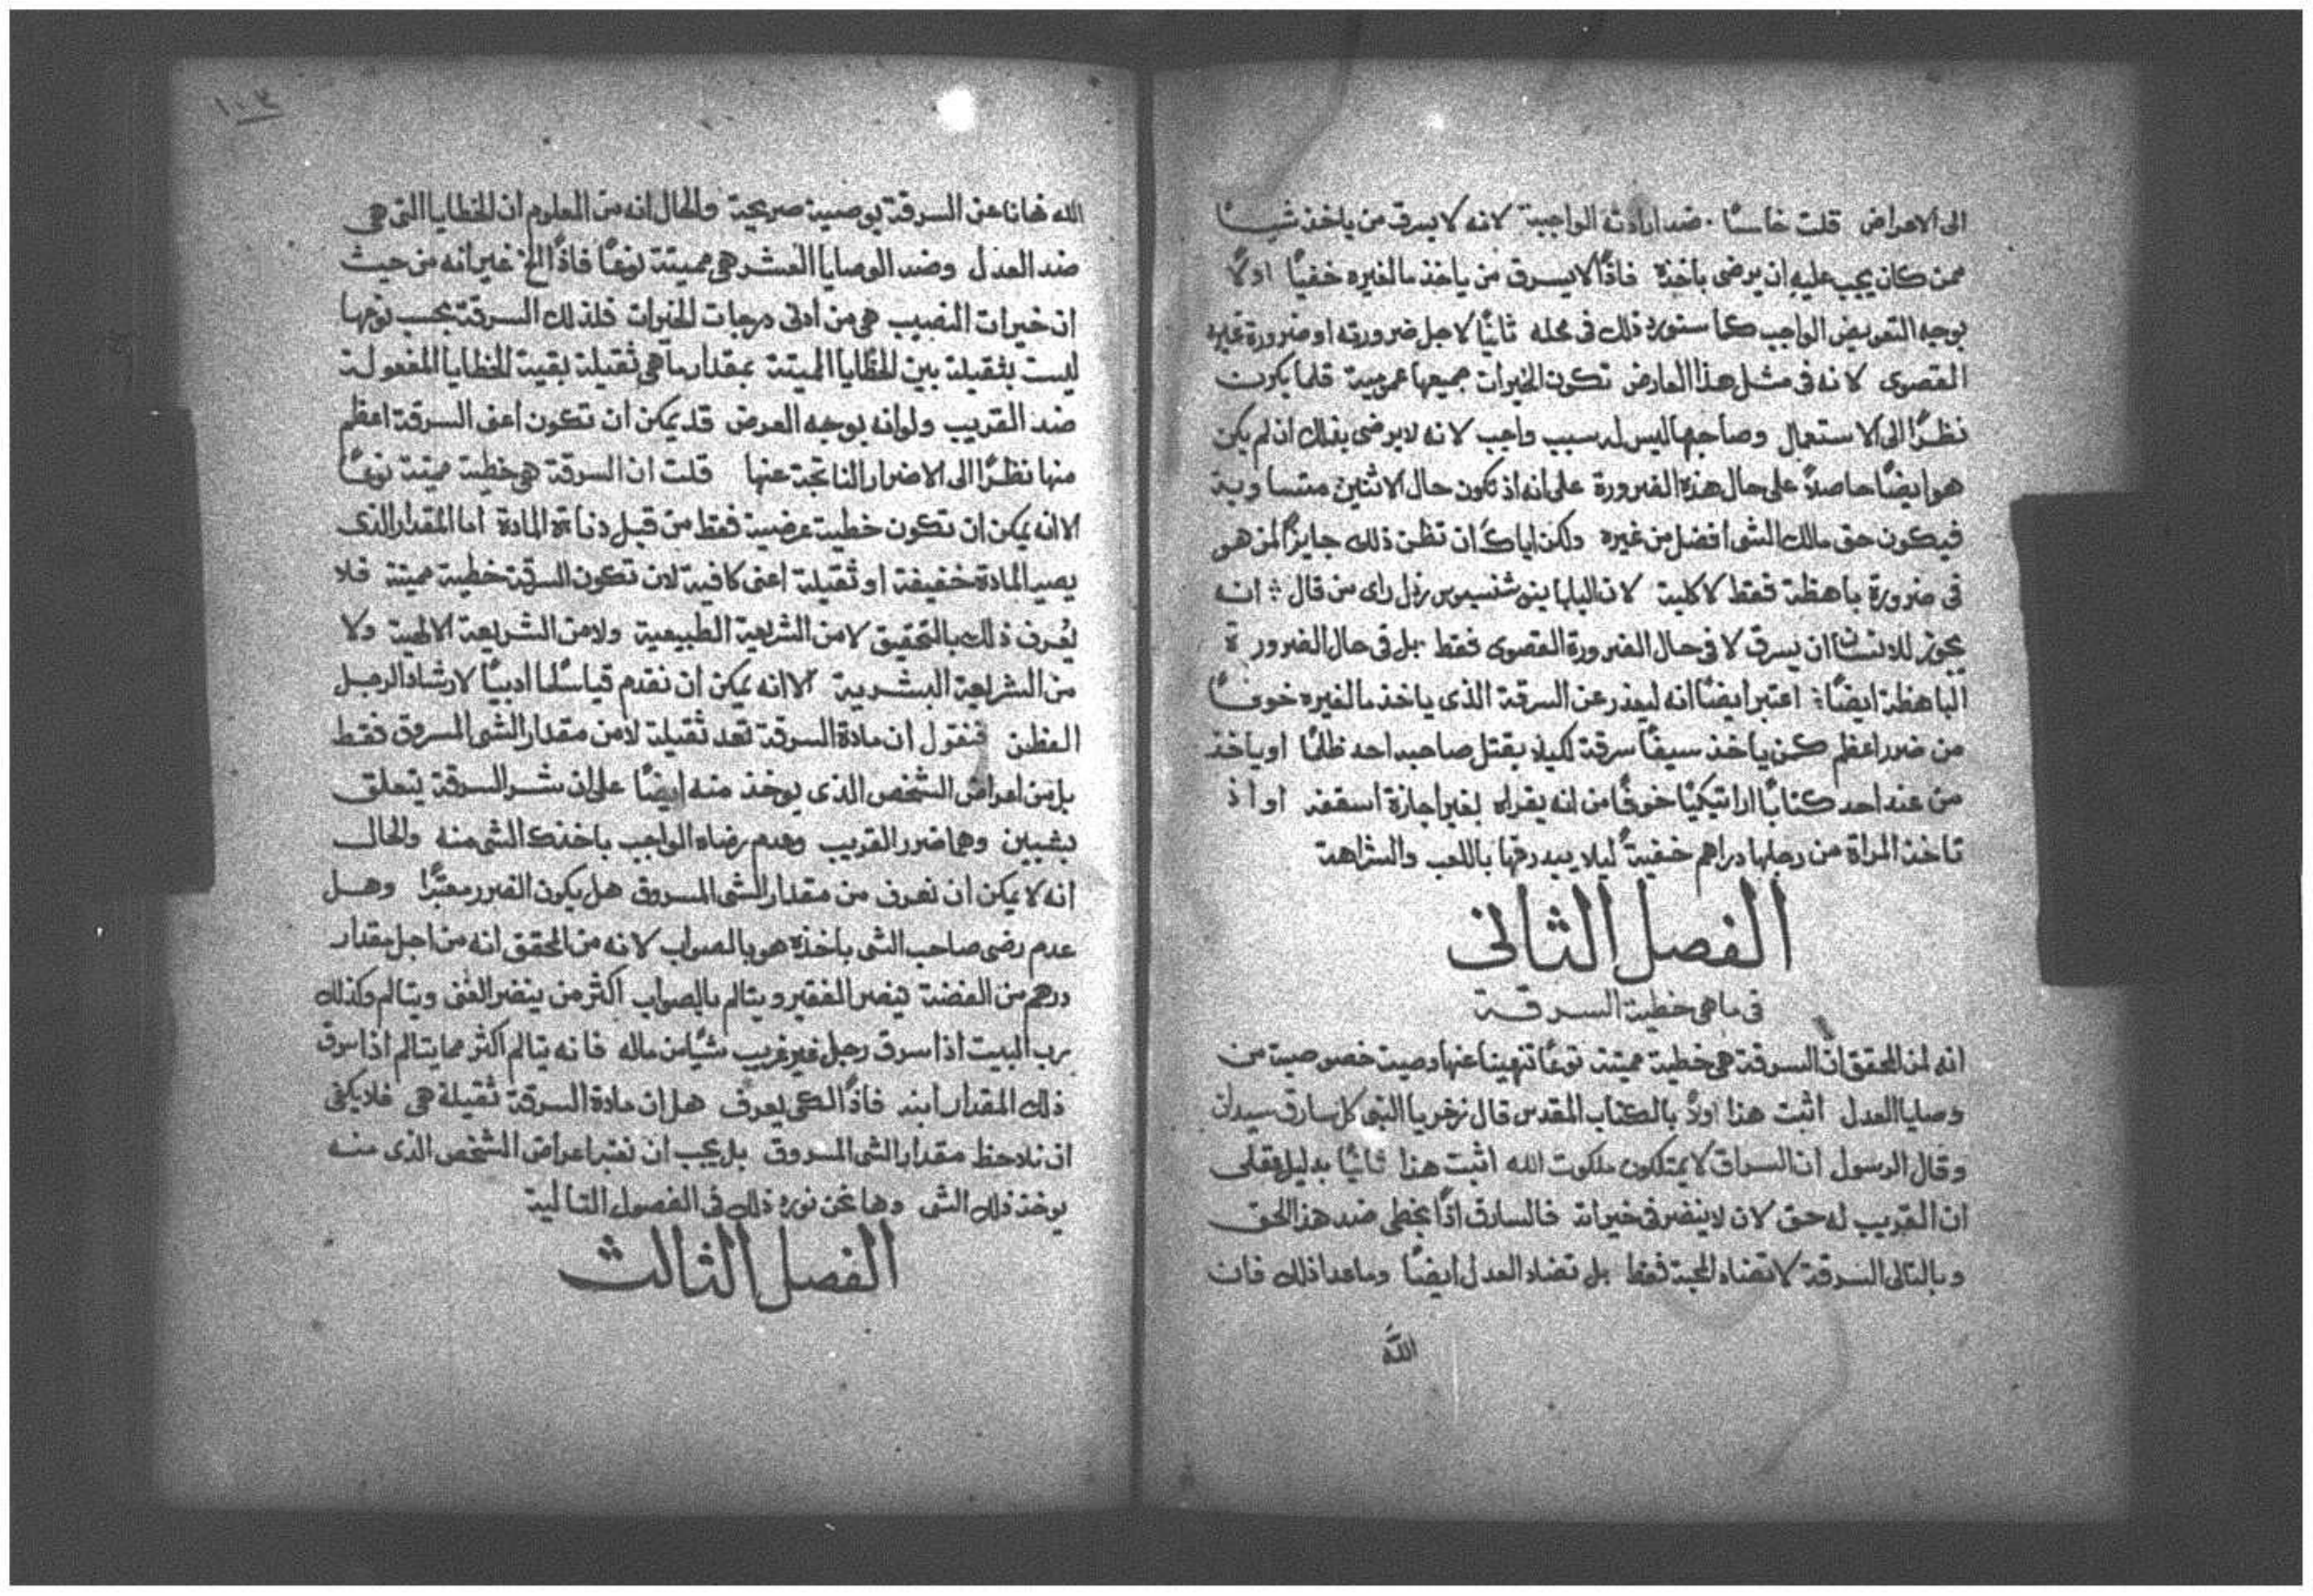 الى الاعراض قلت خامسًا ضد ارادته الواجبة لانه لا يسرق من ياخذ شيًا
ممن كان يجب عليه ان يرضى باخذه فاذًا لا يسرق من ياخذ ما لغيره خفيًا اولًا
بوجه التعويض الواجب كما سنورد ذلك فى محله ثانيًا لاجل ضرورته او ضرورة غيره
القصوى لانه فى مثل هذا العارض تكون الخيرات جميعها عمومية قلما يكون
نظرًا الى الاستعمال وصاحبها ليس له سبب واجب لانه لا يرضى بذلك ان لم يكن
هو ايضًا حاصلًا على حال هذه الضرورة على انه اذ تكون حال الاثنين متساوية
فيكون حق مالك الشى افضل من غيره ولكن اياك ان تظن ذلك جايزًا لمن هو
فى ضرورة باهظة فقط لا كلية لان البابا اينوشنسيوس رذل راى من قال : انه
يجوز للانسان ان يسرق لا فى حال الضرورة القصوى فقط بل فى حال الضرورة
الباهظة ايضًا : اعتبر ايضًا انه ليعذر عن السرقة الذى ياخذ ما لغيره خوفًا
من ضرر اعظم كمن ياخذ سيفًا سرقة لكيلا يقتل صاحبه احد ظلمًا او ياخذ
من عند احد كتابًا اراتيكيًا خوفًا من انه يقراه بغير اجازة اسقفه او اذ
تاخذ المراة من رجلها دراهم خفيةً ليلا يبدرقها باللعب والشراهة
الفصل الثانى
فى ما هى خطية السرقة
انه لمن المحقق ان السرقة هى خطية مميتة نوعًا تنهينا عنها وصية خصوصية من
وصايا العدل اثبت هذا اولًا بالكتاب المقدس قال زخريا النبى كل سارق سيدان
وقال الرسول ان السراق لا يمتلكون ملكوت الله اثبت هذا ثانيًا بدليل عقلى
ان القريب له حق لان لا ينضر فى خيراته فالسارق اذًا يخطى ضد هذا الحق
وبالتالى السرقة لا تضاد المحبة فقط بل تضاد العدل ايضًا وما عدا ذلك فان
الله
١٠٣
الله نهانا عن السرقة بوصية صريحة والحال انه من المعلوم ان الخطايا التى هى
ضد العدل وضد الوصايا العشر هى مميتة نوعًا فاذًا الخ غير انه من حيث
ان خيرات النصيب هى من ادنى درجات الخيرات فلذلك السرقة بحسب نوعها
ليست بثقيلة بين الخطايا المميتة بمقدار ما هى ثقيلة بقية الخطايا المفعولة
ضد القريب ولو انه بوجه العرض قد يمكن ان تكون اعنى السرقة اعظم
منها نظرًا الى الاضرار الناتجة عنها قلت ان السرقة هى خطية مميتة نوعًا
لانه يمكن ان تكون خطية عرضية فقط من قبل دناءة المادة اما المقدار الذى
يصير المادة خفيفة او ثقيلة اعنى كافية لان تكون السرقة خطية مميتة فلا
يُعرف ذلك بالتحقيق لا من الشريعة الطبيعية ولا من الشريعة الالهية ولا
من الشريعة البشرية الا انه يمكن ان نقدم قياسًا ما ادبيًا لارشاد الرجل
الفطن فنقول ان مادة السرقة تعد ثقيلة لا من مقدار الشى المسروق فقط
بل من اعراض الشخص الذى يوخذ منه ايضًا على ان شر السرقة يتعلق
بشيين وهما ضرر القريب وعدم رضاه الواجب باخذك الشى منه والحال
انه لا يمكن ان نعرف من مقدار الشى المسروق هل يكون الضرر معتبرًا وهل
عدم رضى صاحب الشى باخذه هو بالصواب لانه من المحقق انه من اجل مقدار
درهم من الفضة ينضر الفقير ويتالم بالصواب اكثر من ينضر الغنى ويتالم وكذلك
رب البيت اذا سرق رجل غير غريب شيًا من ماله فانه يتالم اكثر مما يتالم اذا سرق
ذلك المقدار ابنه فاذًا لكى يعرف هل ان مادة السرقة ثقيلة هى فلا يكفى
ان نلاحظ مقدار الشى المسروق بل يجب ان نعتبر اعراض الشخص الذى منه
يوخذ ذلك الشى وها نحن نورد ذلك فى الفصول التالية
الفصل الثالث